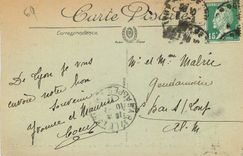 69
Carte Postale
Correspondance
15
De Lyon je vous
envoie notre bon
Souvenir
Yvonne et Maurice
Mr et Mme Malrie
Gendarmerie
Bar S/ Loup
A.M